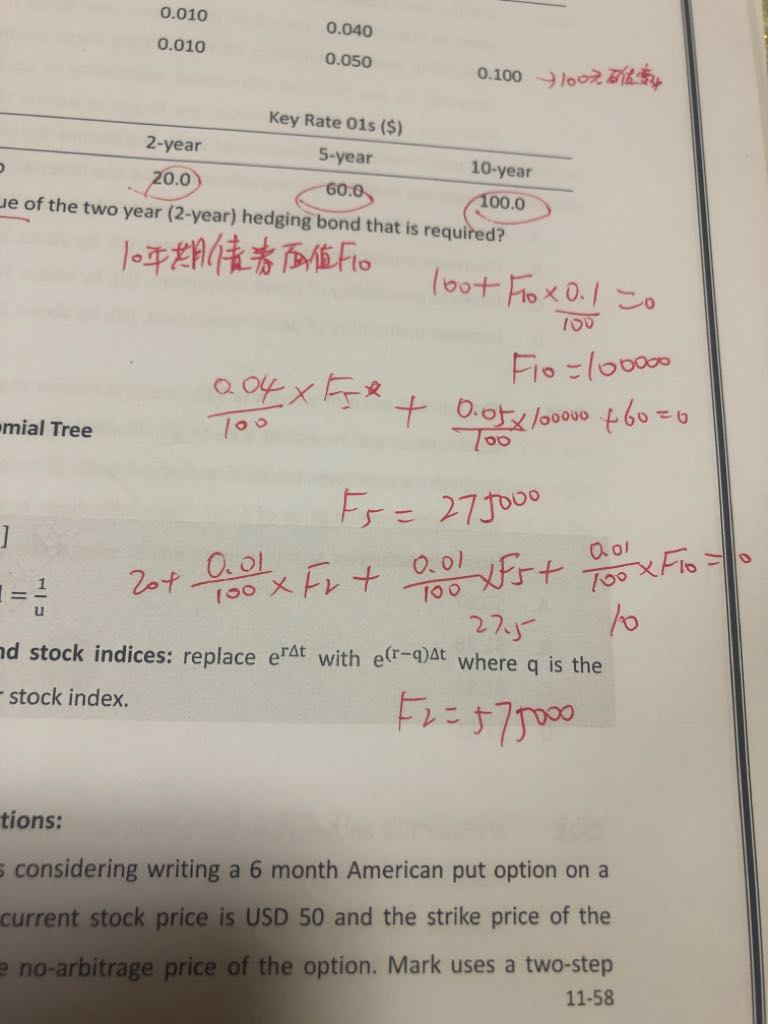 0.010
0.040
0.010
0.050
0.100 →100元面值变化
Key Rate 01s ($)
2-year 5-year 10-year
20.0 60.0 100.0
ue of the two year (2-year) hedging bond that is required?
10年期债券面值F10
100+ F10 × 0.1/100 = 0
F10 = 100000
0.04/100 × F5 + 0.05/100 × 100000 + 60 = 0
omial Tree
F5 = 275000
]
20 + 0.01/100 × F2 + 0.01/100 × F5 + 0.01/100 × F10 = 0
= 1/u
27.5 10
nd stock indices: replace e^rΔt with e^(r−q)Δt where q is the
stock index.
F2 = 575000
tions:
s considering writing a 6 month American put option on a
current stock price is USD 50 and the strike price of the
e no-arbitrage price of the option. Mark uses a two-step
11-58